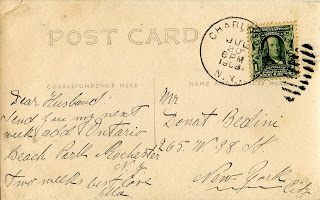 POST CARD
CHARL
JUL
30
6 PM
1908
N.Y.
CORRESPONDENCE HERE
NAME AND ADDRESS HERE
Dear Husband
Send you my next
weeks add Ontario
Beach Park Rochester
N.Y.
Two weeks best love
Ella
Mr
Donat Bedini
265 W-38 St
New York
City